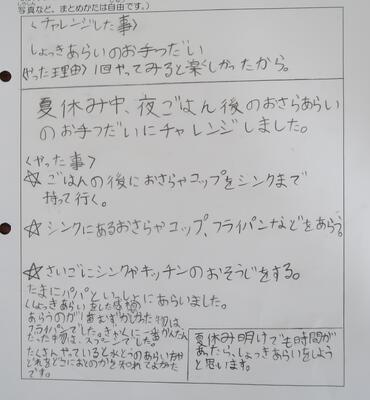 写真など、まとめかたは自由です。)
〈チャレンジした事〉
しょっきあらいのお手つだい
〈やった理由〉1回やってみると楽しかったから。
夏休み中、夜ごはん後のおさらあらい
のお手つだいにチャレンジしました。
〈やった事〉
☆ごはんの後におさらやコップをシンクまで
持って行く。
☆シンクにあるおさらやコップ、フライパンなどをあらう。
☆さいごにシンクやキッチンのおそうじをする。
たまにパパといっしょにあらいました。
〈しょっきあらいをした感想〉
あらうのが1番むずかしかった物は、
フライパンでした。ぎゃくに一番かんたん
だった物は、スプーンでした。
たくさんやっていると水とうのあらい方や
どれをどこにおくのかを知れてよかった
です。
夏休み明けでも時間が
あったら、しょっきあらいをしよう
と思います。